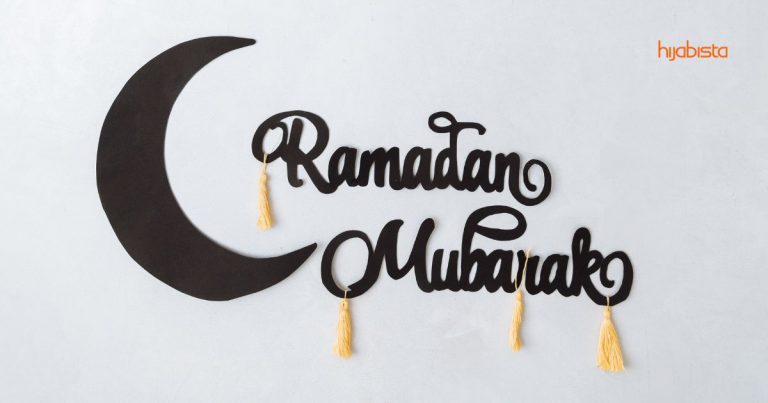 hijabista
Ramadan
Mubarak